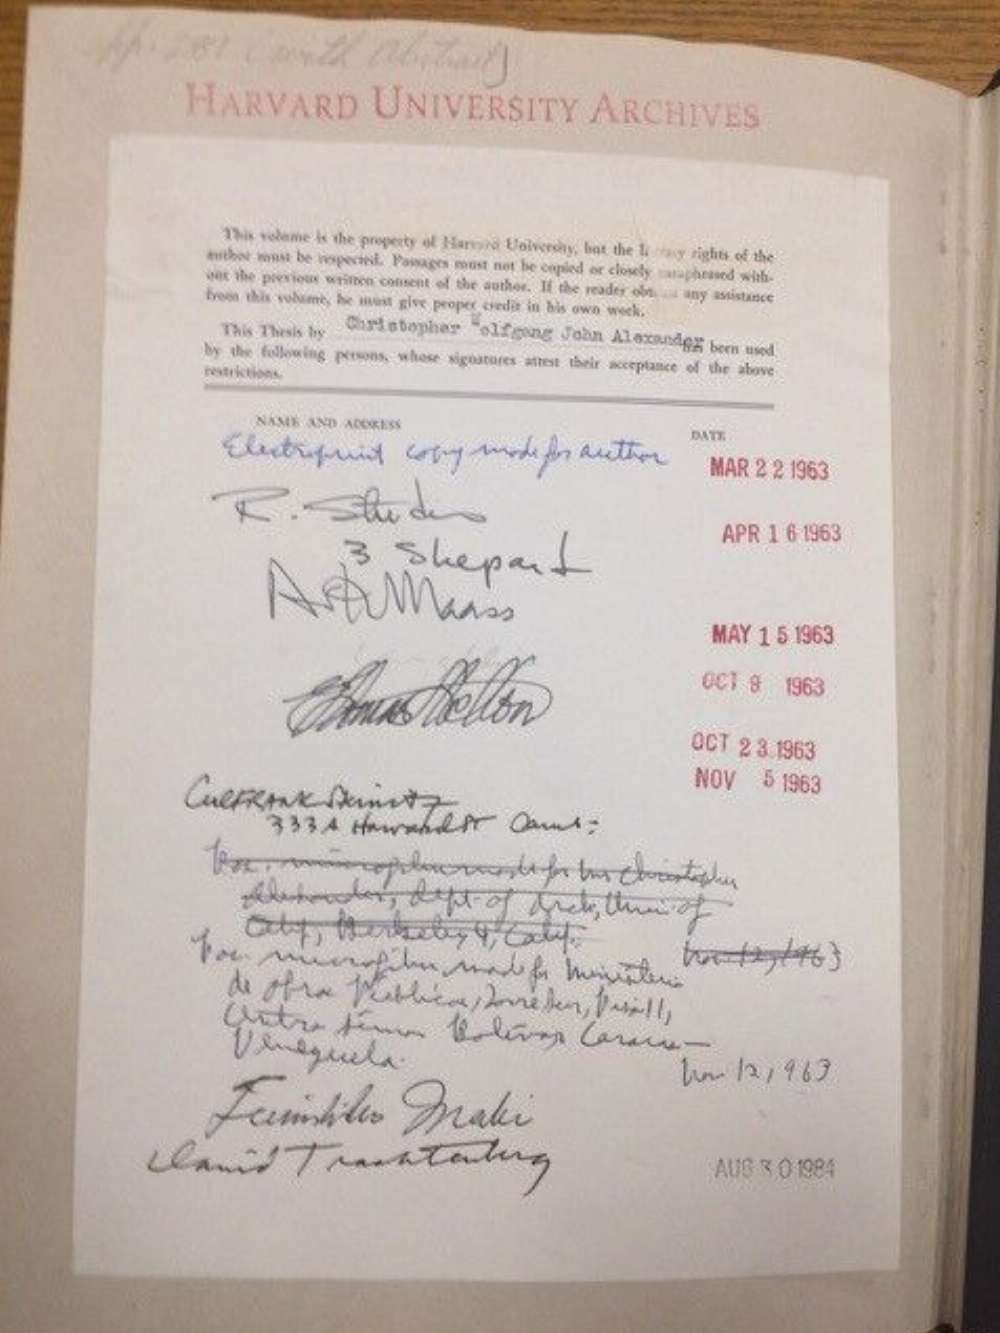 (with Abstract)
HARVARD UNIVERSITY ARCHIVES
This volume is the property of Harvard University, but the literary rights of the
author must be respected. Passages must not be copied or closely paraphrased with-
out the previous written consent of the author. If the reader obtains any assistance
from this volume, he must give proper credit in his own work.
This Thesis by Christopher Wolfgang John Alexander has been used
by the following persons, whose signatures attest their acceptance of the above
restrictions.
NAME AND ADDRESS
DATE
Electroprint copy made for author MAR 22 1963
R. APR 16 1963
3 Shepard
Arthur Maass MAY 15 1963
OCT 9 1963
OCT 23 1963
NOV 5 1963
333A Harvard St Camb:
microfilm made for Christopher
Alexander, Dept. of Arch, Univ of
Calif, Berkeley 4, Calif. Nov 12, 1963
microfilm made for Ministerio
de Obras Publicas,
Centro Simon Bolivar, Caracas
Venezuela. Nov 12, 1963
Fumihiko Maki
David Trachtenberg AUG 30 1984